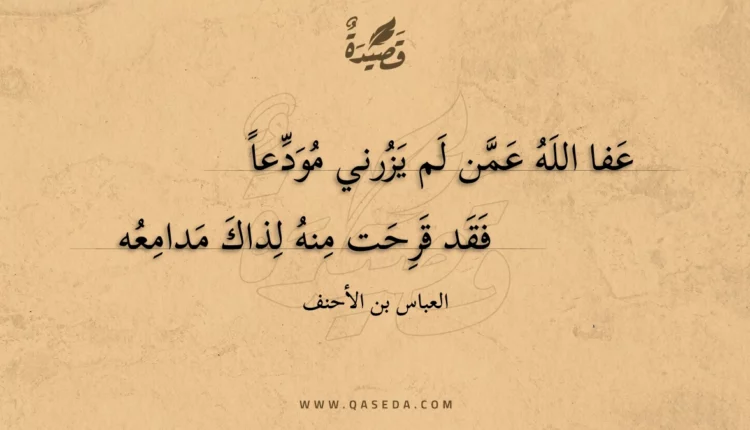 قَصِيدَةٌ
عَفا اللَهُ عَمَّن لَم يَزُرني مُوَدِّعاً
فَقَد قَرِحَت مِنهُ لِذاكَ مَدامِعُه
العباس بن الأحنف
WWW.QASEDA.COM